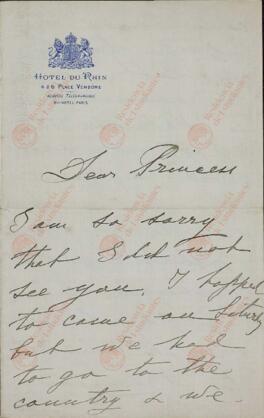 HOTEL DU RHIN
4 & 6 PLACE VENDÔME
ADRESSE TÉLÉGRAPHIQUE
RHINOTEL PARIS
Dear Princess
I am so sorry
that I did not
see you. I hopped
to come on
but we had
to go to the
country & we
Residencia
de Estudiantes